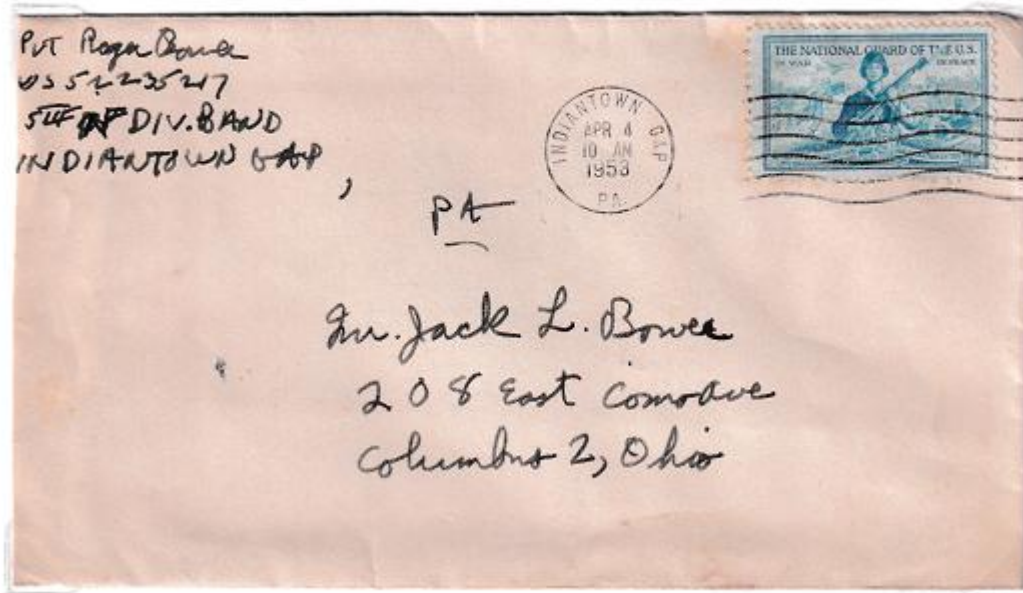 Pvt Roger Bower
US 52235217
5th INF DIV. BAND
INDIANTOWN GAP,
PA
INDIANTOWN GAP
APR 4
10 AM
1953
PA
THE NATIONAL GUARD OF THE U.S.
IN WAR IN PEACE
Mr. Jack L. Bower
208 East Como Ave
Columbus 2, Ohio